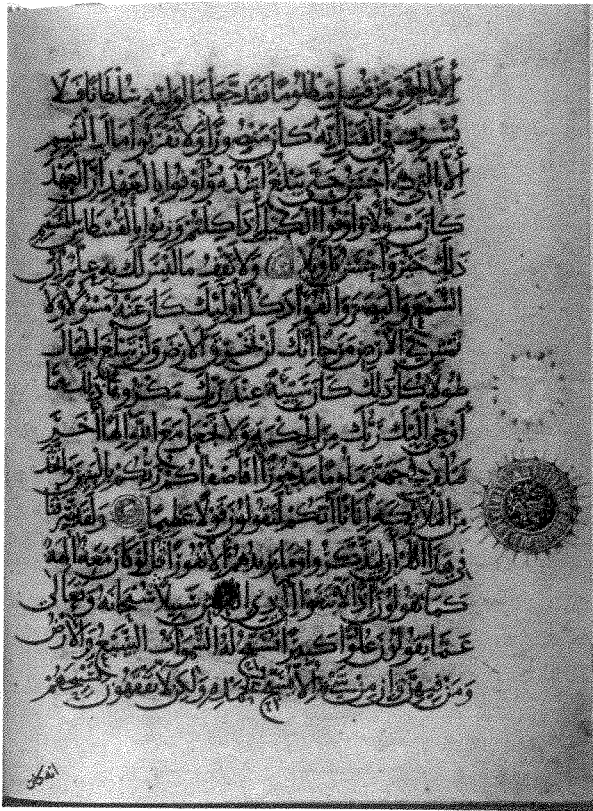 إلا بالحق ومن قتل مظلوما فقد جعلنا لوليه سلطانا فلا
يسرف في القتل إنه كان منصورا ولا تقربوا مال اليتيم
إلا بالتي هي أحسن حتى يبلغ أشده وأوفوا بالعهد إن العهد
كان مسئولا وأوفوا الكيل إذا كلتم وزنوا بالقسطاس المستقيم
ذلك خير وأحسن تأويلا ولا تقف ما ليس لك به علم إن
السمع والبصر والفؤاد كل أولئك كان عنه مسئولا ولا
تمش في الأرض مرحا إنك لن تخرق الأرض ولن تبلغ الجبال
طولا كل ذلك كان سيئه عند ربك مكروها ذلك مما
أوحى إليك ربك من الحكمة ولا تجعل مع الله إلها آخر
فتلقى في جهنم ملوما مدحورا أفأصفاكم ربكم بالبنين واتخذ
من الملائكة إناثا إنكم لتقولون قولا عظيما ولقد صرفنا
في هذا القرآن ليذكروا وما يزيدهم إلا نفورا قل لو كان معه آلهة
كما يقولون إذا لابتغوا إلى ذي العرش سبيلا سبحانه وتعالى
عما يقولون علوا كبيرا تسبح له السموات السبع والأرض
ومن فيهن وإن من شيء إلا يسبح بحمده ولكن لا تفقهون تسبيحهم
انه كان